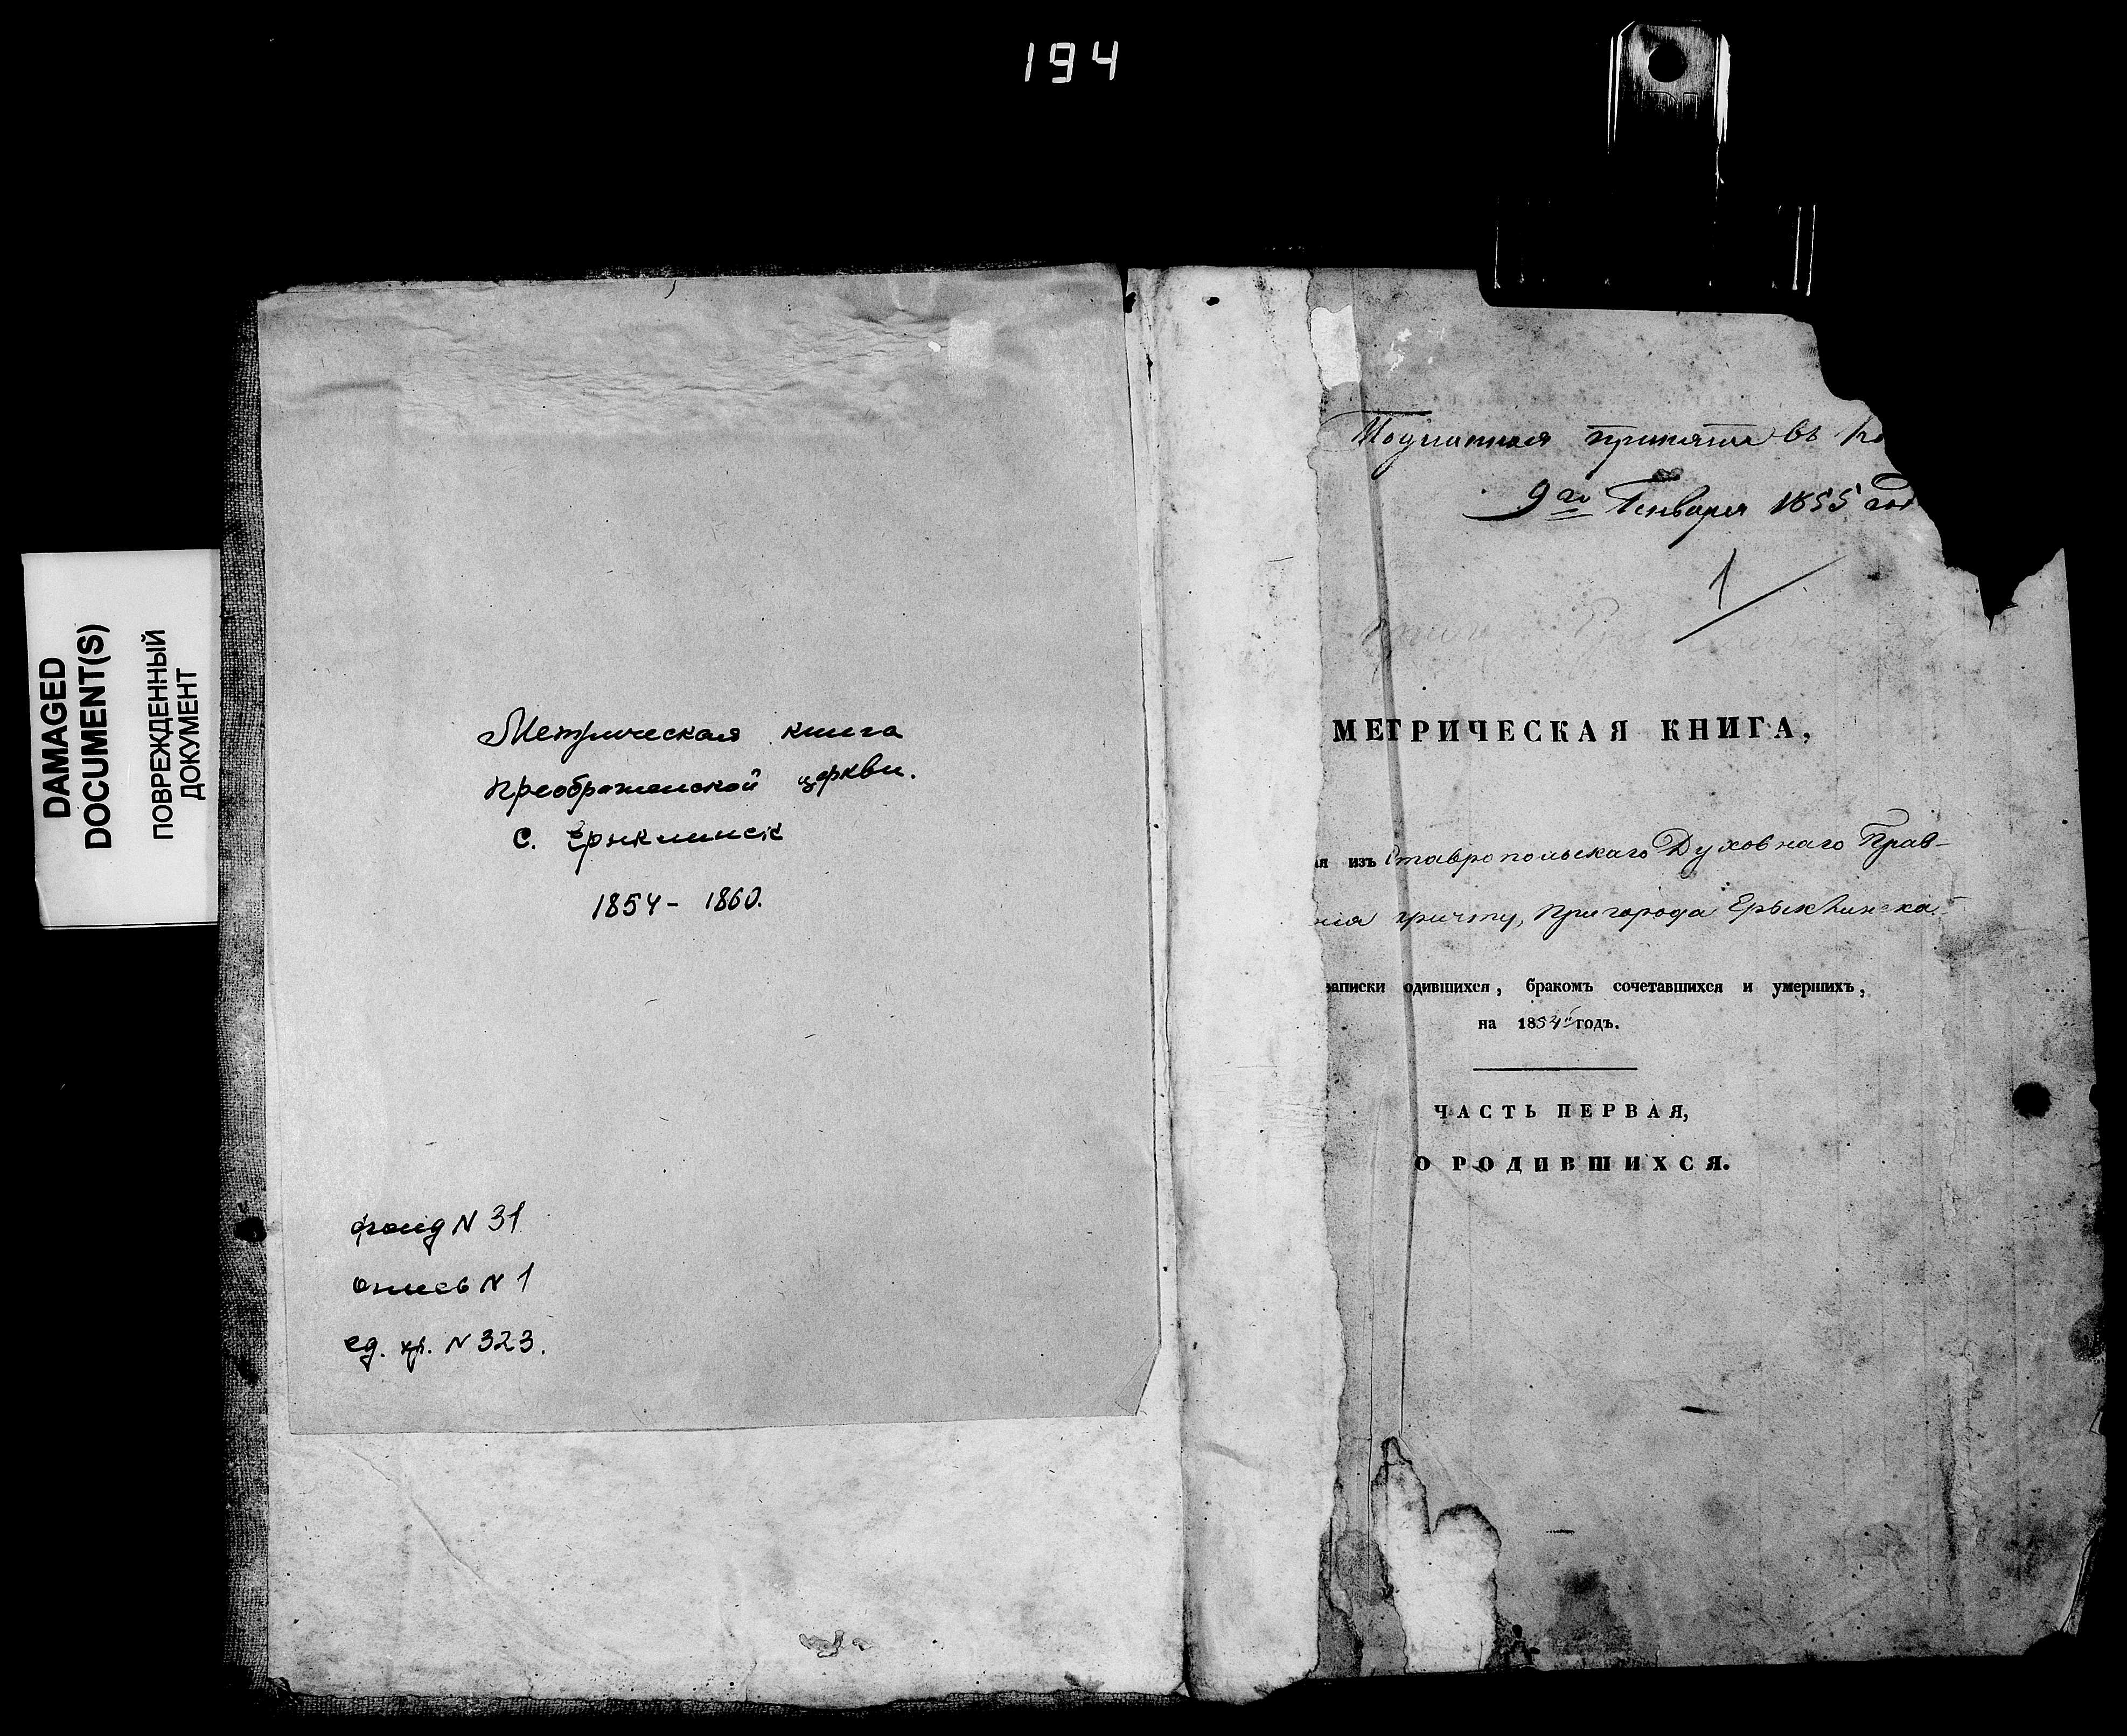 194
DAMAGED
DOCUMENT(S)
ПОВРЕЖДЕННЫЙ
ДОКУМЕНТ
Метрическая книга
преображенской церкви.
с. Ерыклинск
1854 - 1860.
фонд N 31
опись N 1
ед. хр. N 323.
принята въ
9го Генваря 1855 год
1
МЕТРИЧЕСКАЯ КНИГА,
ая изъ Ставропольскаго Духовнаго Прав-
нія причту, Пригорода Ерыклинска
записки одившихся, бракомъ сочетавшихся и умершихъ,
на 1854й годъ.
ЧАСТЬ ПЕРВАЯ,
О РОДИВШИХСЯ.